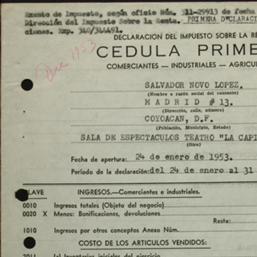 Exento de Impuesto, según oficio Núm. 311-29913 de fecha
Dirección del Impuesto Sobre la Renta. PRIMERA DECLARACI
ciones. Exp. 340/344491.
DECLARACIÓN DEL IMPUESTO SOBRE LA RE
CEDULA PRIME
COMERCIANTES — INDUSTRIALES — AGRICUL
SALVADOR NOVO LOPEZ.
(Nombre o razón social del causante)
MADRID # 13.
(Dirección, calle, número)
COYOACAN, D.F.
(Población, Municipio, Estado)
SALA DE ESPECTACULOS TEATRO "LA CAPI
(Giro)
Fecha de apertura: 24 de enero de 1953.
Período de la declaración: del 24 de enero al 31
CLAVE INGRESOS.—Comerciantes e industriales.
0010 Ingresos totales (Objeto del negocio)
0020 X Menos: Bonificaciones, devoluciones
Resta:
1010 Ingresos por otros conceptos Anexo Núm.
COSTO DE LOS ARTICULOS VENDIDOS:
Inventarios iniciales del ejercicio